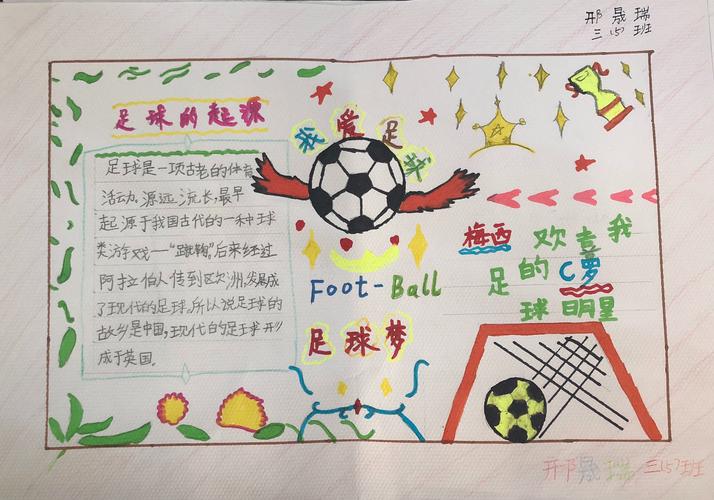 邢晟瑞
三(5)班
足球的起源
足球是一项古老的体育
活动,源远流长,最早
起源于我国古代的一种球
类游戏——“蹴鞠”,后来经过
阿拉伯人传到欧洲,发展成
了现代的足球,所以说足球的
故乡是中国,现代的足球形
成于英国。
我爱足球
Foot-Ball
足球梦
梅西 欢喜我
足的C罗
球明星
邢晟瑞 三(5)班